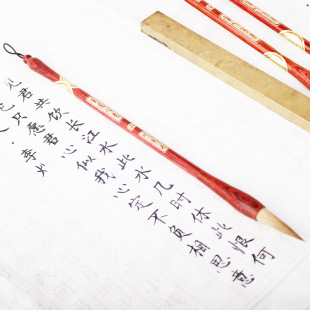 见君共饮长江水此水几时休此恨何
已只愿君心似我心定不负相思意
李